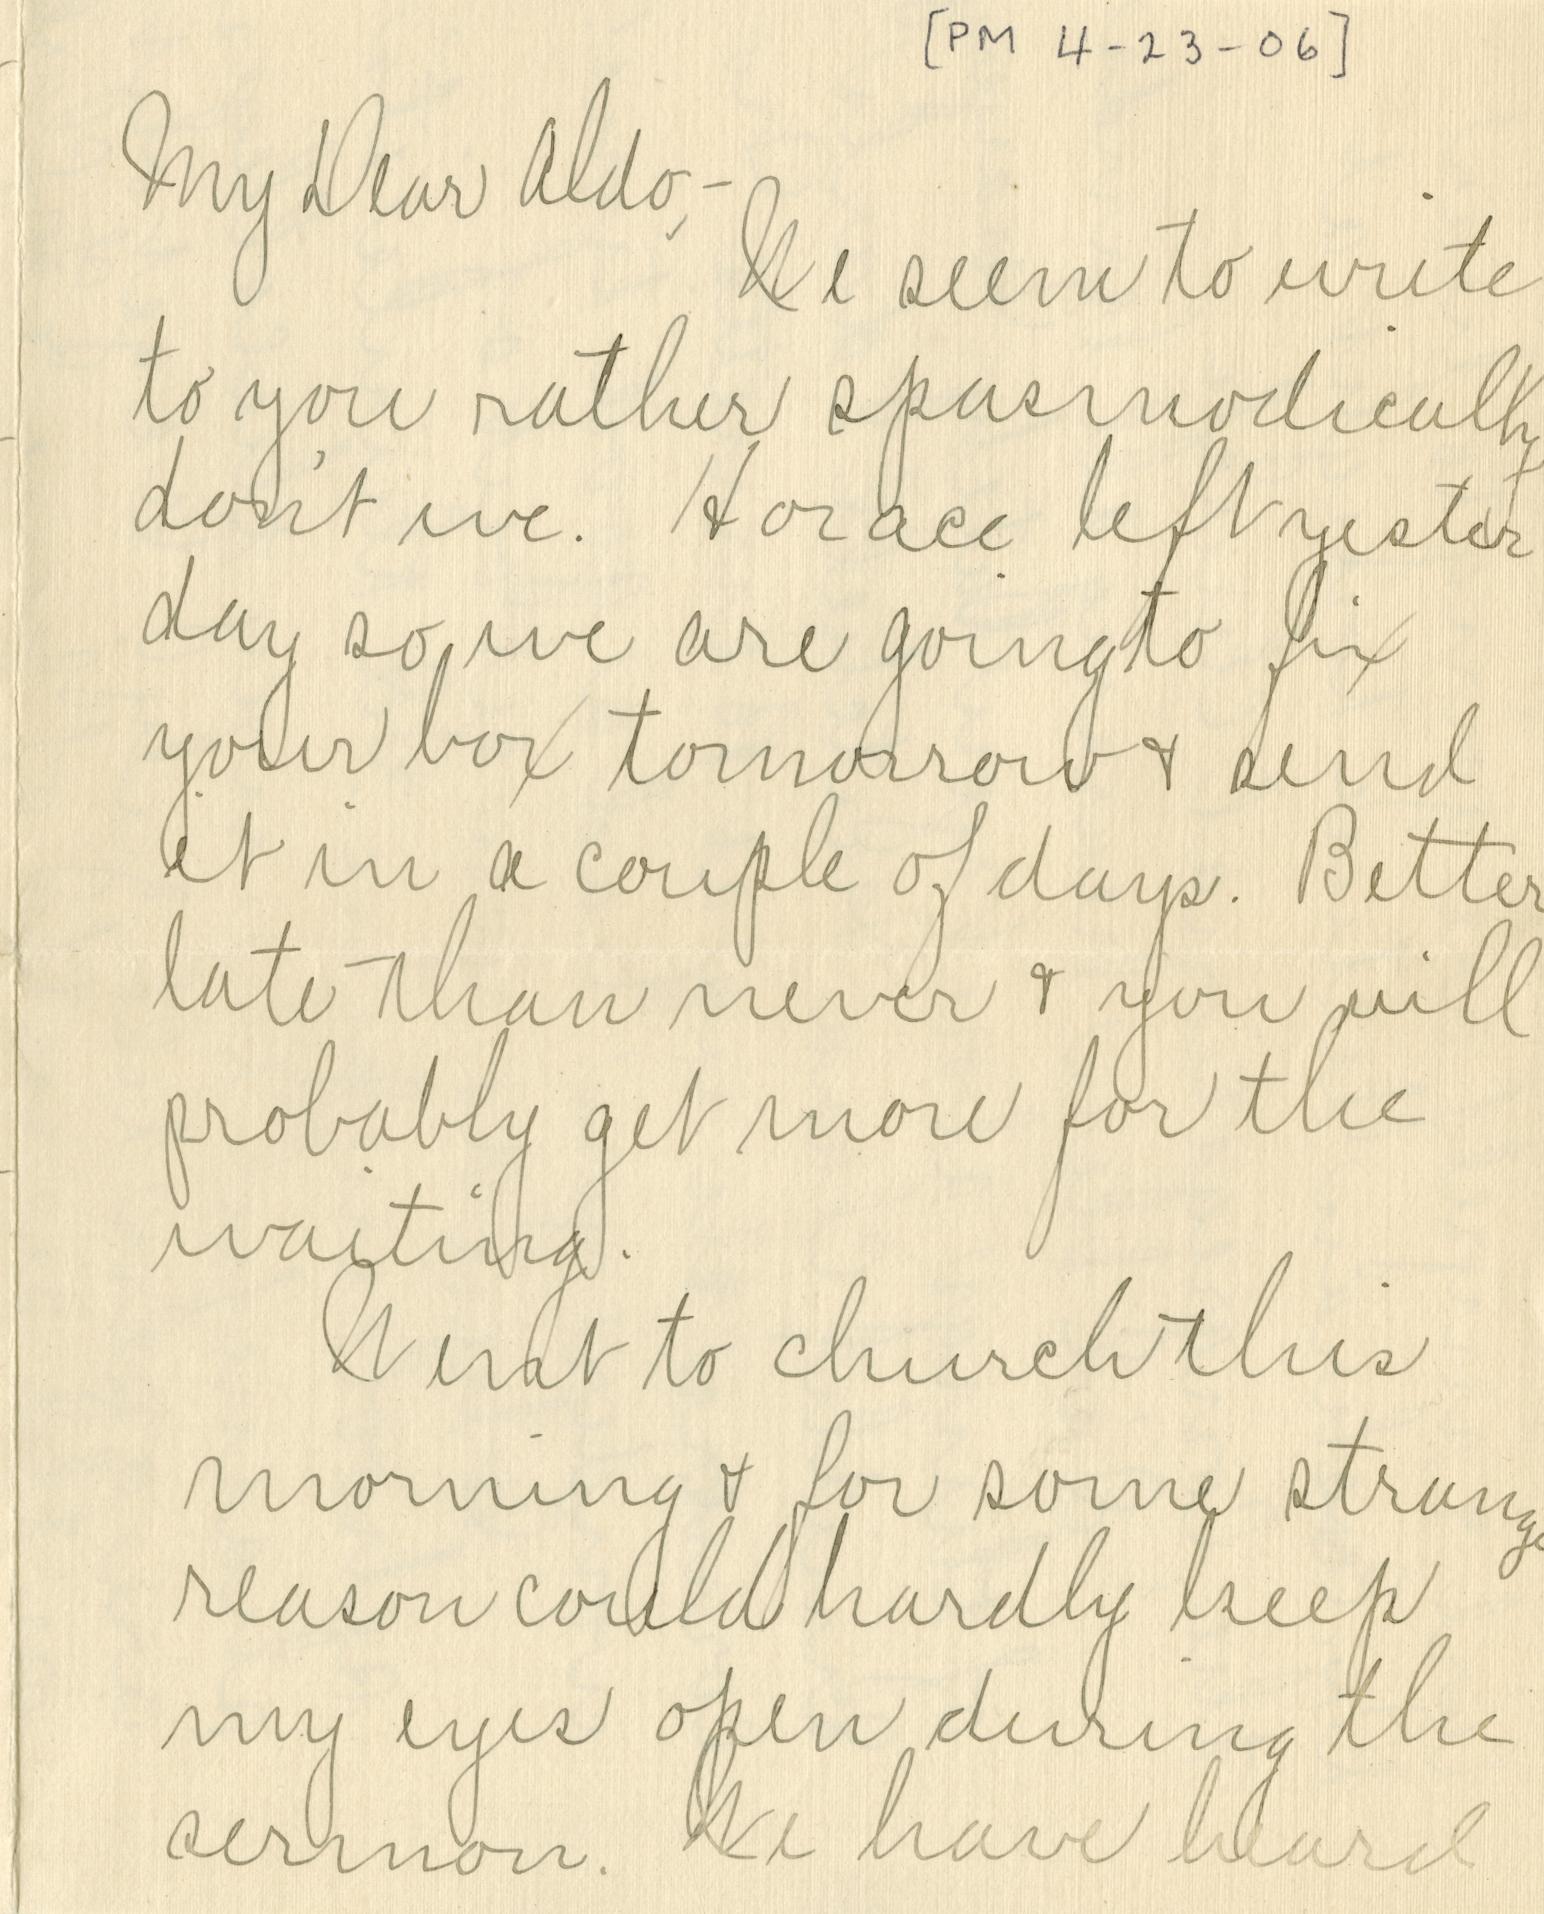 [PM 4-23-06]
My Dear Aldo,-
We seem to write
to you rather spasmodically
don't we. Horace left yester
day so we are going to fix
your box tomorrow & send
it in a couple of days. Better
late than never & you will
probably get more for the
waiting.
Went to church this
morning & for some strange
reason could hardly keep
my eyes open during the
sermon. We have heard